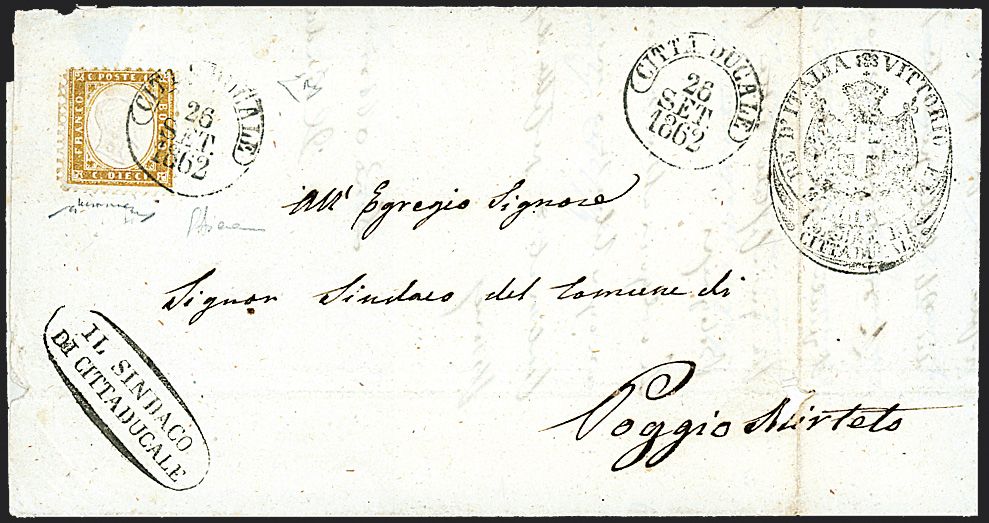 C POSTE
FRANCO
BOLLO
C. DIECI
CITTÀ DUCALE
26
SET
1862
CITTÀ DUCALE
26
SET
1862
RE D'ITALIA VITTORIO
CITTADUCALE
All' Egregio Signore
Signor Sindaco del Comune di
Poggio Mirteto
IL SINDACO
DI CITTADUCALE